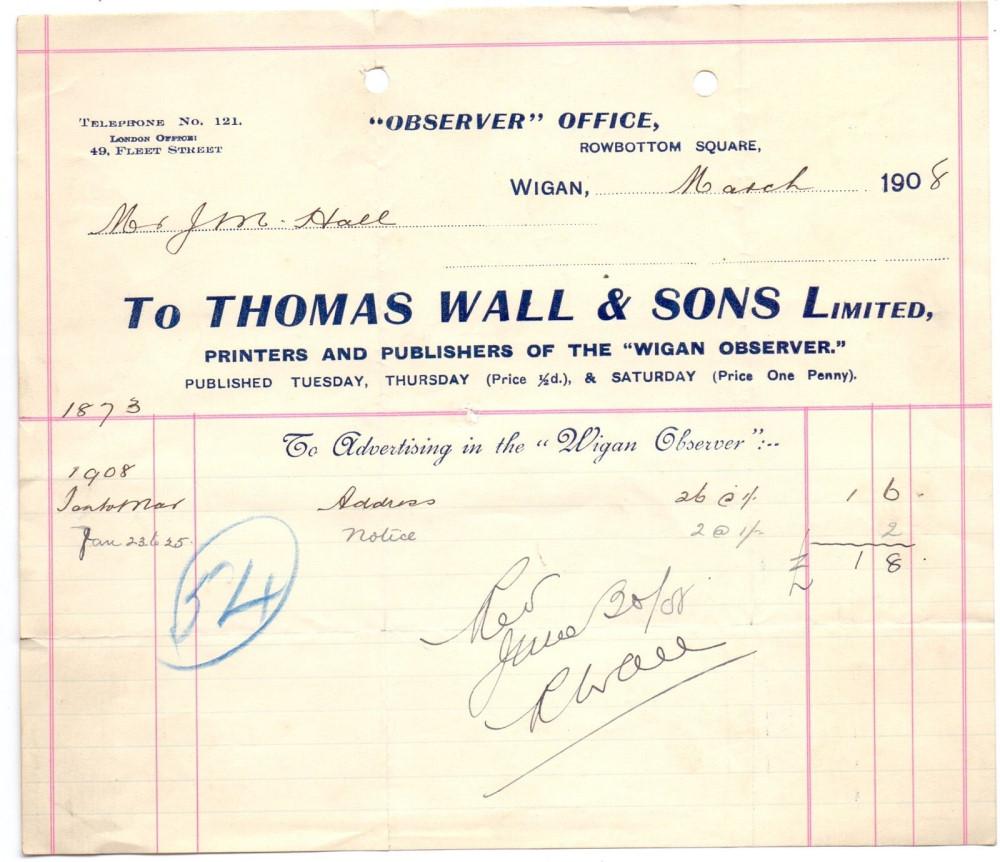 TELEPHONE No. 121.
LONDON OFFICE:
49, FLEET STREET
"OBSERVER" OFFICE,
ROWBOTTOM SQUARE,
WIGAN, March 1908
Mr J M. Hall
To THOMAS WALL & SONS LIMITED,
PRINTERS AND PUBLISHERS OF THE "WIGAN OBSERVER."
PUBLISHED TUESDAY, THURSDAY (Price ½d.), & SATURDAY (Price One Penny).
1873
To Advertising in the "Wigan Observer":--
1908
Jan to Mar Address 26 @ 1/- 1 6 .
Jan 23 & 25. Notice 2 @ 1/- 2
£ 1 8 .
54
Recd
June 30/08
R Wall